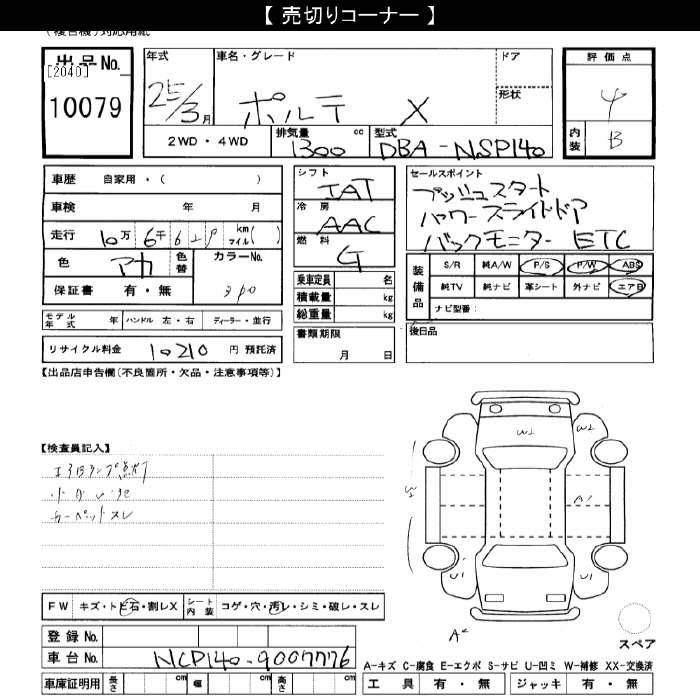 【 売切りコーナー 】
(複合機)対応用紙
出品No.
[2040]
10079
年式
25/3月
車名・グレード
ポルテ X
ドア
形状
評価点
4
内装 B
2WD・4WD
排気量 1300 cc
型式 DBA-NSP140
車歴 自家用・( )
車検 年 月
走行 10万 6千 6 2 9 km マイル( )
色 アカ 色替
カラーNo. 3P0
保証書 有・無
モデル年式 年 ハンドル 左・右 ディーラー・並行
リサイクル料金 10210 円 預託済
シフト
IAT
冷房
AAC
燃料
G
乗車定員 名
積載量 kg
総重量 kg
書類期限
月 日
セールスポイント
プッシュスタート
パワースライドドア
バックモニター ETC
装備品
S/R 純A/W P/S P/W ABS
純TV 純ナビ 革シート 外ナビ エアB
ナビ型番:
後日品
【出品店申告欄(不良箇所・欠品・注意事項等)】
【検査員記入】
エアBランプ点灯
小カ
カーペットスレ
W2
W2
A1
U1
U1
A2
スペア
FW キズ・トビ石・割レX シート内装 コゲ・穴・汚レ・シミ・破レ・スレ
登録No.
車台No. NCP140-9007776
車庫証明用 長さ cm 幅 cm 高さ cm
A-キズ C-腐食 E-エクボ S-サビ U-凹ミ W-補修 XX-交換済
工具 有・無 ジャッキ 有・無